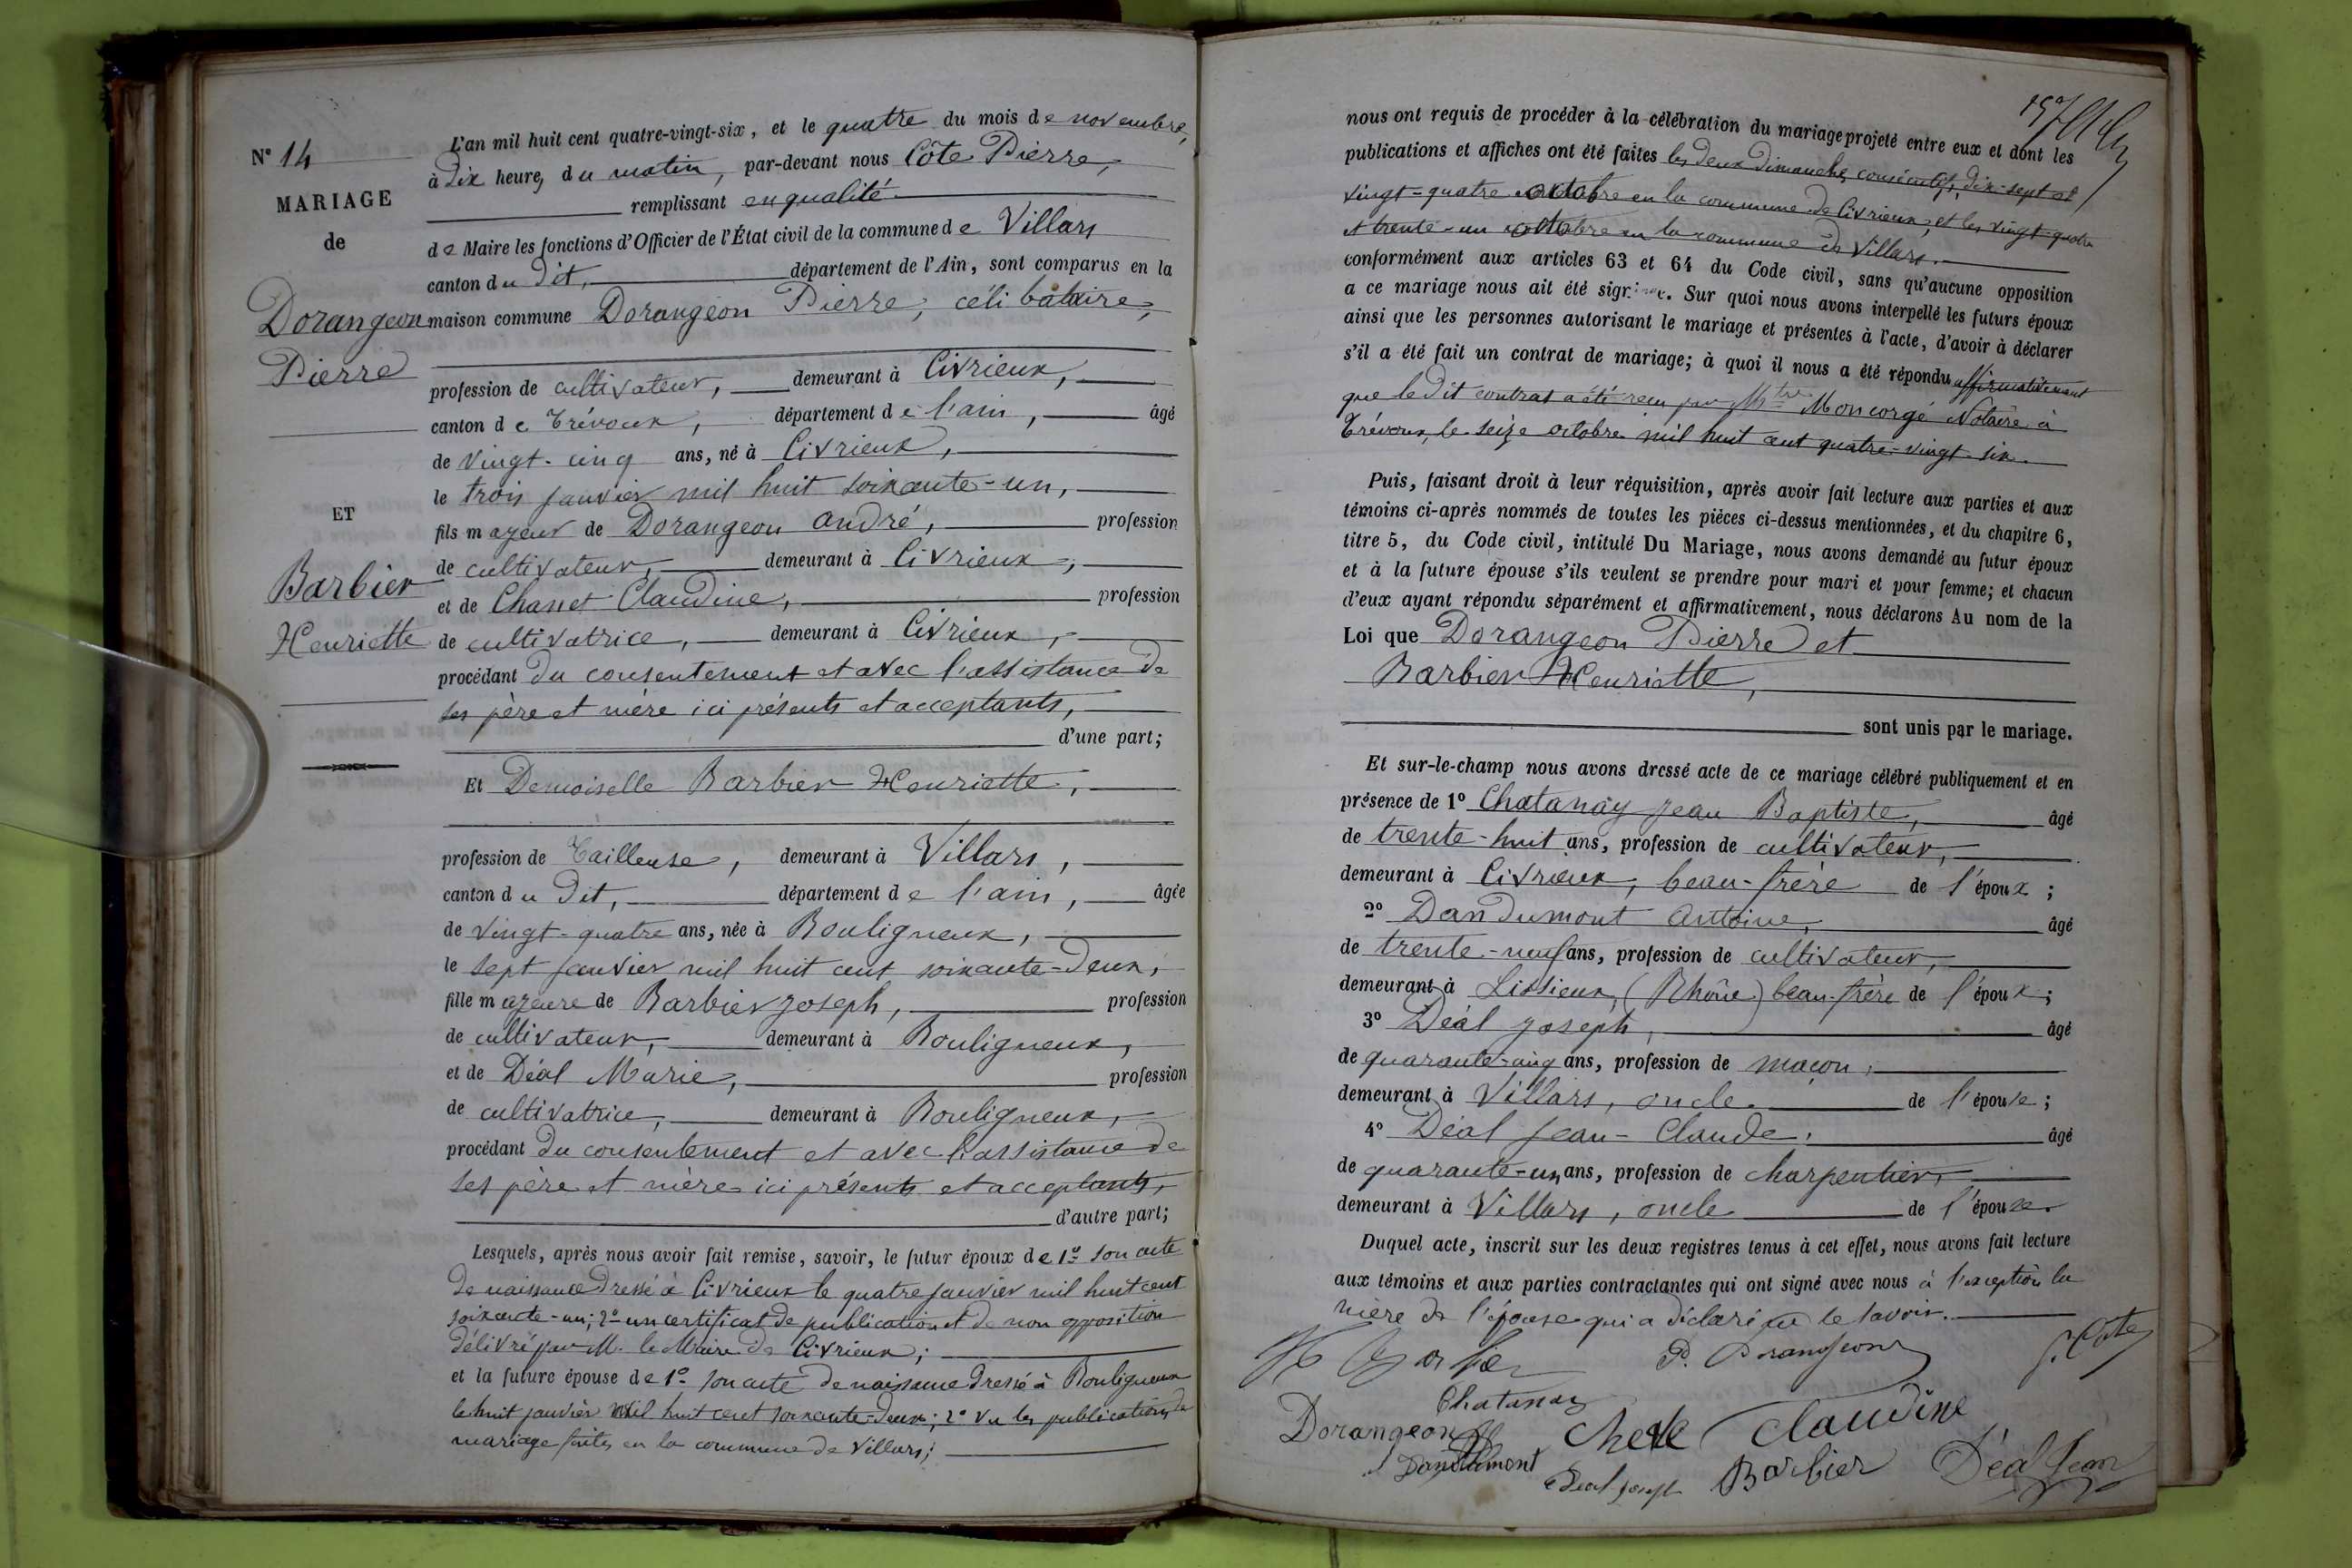 N° 14
MARIAGE
de
Dorangeon
Pierre
ET
Barbier
Henriette
L'an mil huit cent quatre-vingt-six, et le quatre du mois de novembre,
à dix heures du matin, par-devant nous Côte Pierre,
remplissant en qualité
de Maire les fonctions d'Officier de l'État civil de la commune de Villars
canton du dit, département de l'Ain, sont comparus en la
maison commune Dorangeon Pierre, célibataire,
profession de cultivateur, demeurant à Civrieux,
canton de Trévoux, département de l'ain, âgé
de vingt-cinq ans, né à Civrieux,
le trois janvier mil huit soixante-un,
fils majeur de Dorangeon andré, profession
de cultivateur, demeurant à Civrieux,
et de Chanet Claudine, profession
de cultivatrice, demeurant à Civrieux,
procédant du consentement et avec l'assistance de
ses père et mère ici présents et acceptants,
d'une part;
Et Demoiselle Barbier Henriette,
profession de Tailleuse, demeurant à Villars,
canton du dit, département de l'ain, âgée
de vingt-quatre ans, née à Bouligneux,
le sept janvier mil huit cent soixante-deux,
fille majeure de Barbier joseph, profession
de cultivateur, demeurant à Bouligneux,
et de Déal Marie, profession
de cultivatrice, demeurant à Bouligneux,
procédant du consentement et avec l'assistance de
ses père et mère ici présents et acceptants,
d'autre part;
Lesquels, après nous avoir fait remise, savoir, le futur époux de 1° son acte
de naissance dressé à Civrieux le quatre janvier mil huit cent
soixante-un; 2° un certificat de publication et de non opposition
délivré par M. le Maire de Civrieux;
et la future épouse de 1° son acte de naissance dressé à Bouligneux
le huit janvier mil huit cent soixante-deux; 2° Vu les publications de
mariage faites en la commune de Villars;
nous ont requis de procéder à la célébration du mariage projeté entre eux et dont les
publications et affiches ont été faites les deux dimanches consécutifs, dix-sept et
vingt-quatre octobre en la commune de Civrieux, et les vingt-quatre
et trente-un octobre en la commune de Villars.
conformément aux articles 63 et 64 du Code civil, sans qu'aucune opposition
a ce mariage nous ait été signifiée. Sur quoi nous avons interpellé les futurs époux
ainsi que les personnes autorisant le mariage et présentes à l'acte, d'avoir à déclarer
s'il a été fait un contrat de mariage; à quoi il nous a été répondu affirmativement
que le dit contrat a été reçu par Mtre Moncorgé Notaire à
Trévoux, le seize octobre mil huit cent quatre-vingt-six.
Puis, faisant droit à leur réquisition, après avoir fait lecture aux parties et aux
témoins ci-après nommés de toutes les pièces ci-dessus mentionnées, et du chapitre 6,
titre 5, du Code civil, intitulé Du Mariage, nous avons demandé au futur époux
et à la future épouse s'ils veulent se prendre pour mari et pour femme; et chacun
d'eux ayant répondu séparément et affirmativement, nous déclarons Au nom de la
Loi que Dorangeon Pierre et
Barbier Henriette,
sont unis par le mariage.
Et sur-le-champ nous avons dressé acte de ce mariage célébré publiquement et en
présence de 1° Chatanay jean Baptiste, âgé
de trente-huit ans, profession de cultivateur,
demeurant à Civrieux, beau-frère de l'époux;
2° Dandumont antoine, âgé
de trente-neuf ans, profession de cultivateur,
demeurant à Lissieux, (Rhône) beau-frère de l'époux;
3° Déal joseph, âgé
de quarante-cinq ans, profession de maçon,
demeurant à Villars, oncle de l'épouse;
4° Déal Jean-Claude, âgé
de quarante-un ans, profession de charpentier,
demeurant à Villars, oncle de l'épouse.
Duquel acte, inscrit sur les deux registres tenus à cet effet, nous avons fait lecture
aux témoins et aux parties contractantes qui ont signé avec nous à l'exception la
mère de l'épouse qui a déclaré ne le savoir.
H Barbier P. Dorangeon P. Cote
Chatanay
Dorangeon Claudine
Dandumont Déal joseph Barbier Déal Jean